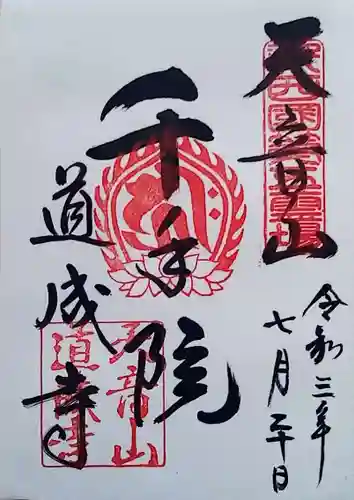 天音山
令和三年
七月二十日
千手院
道成寺
天音山
道成寺